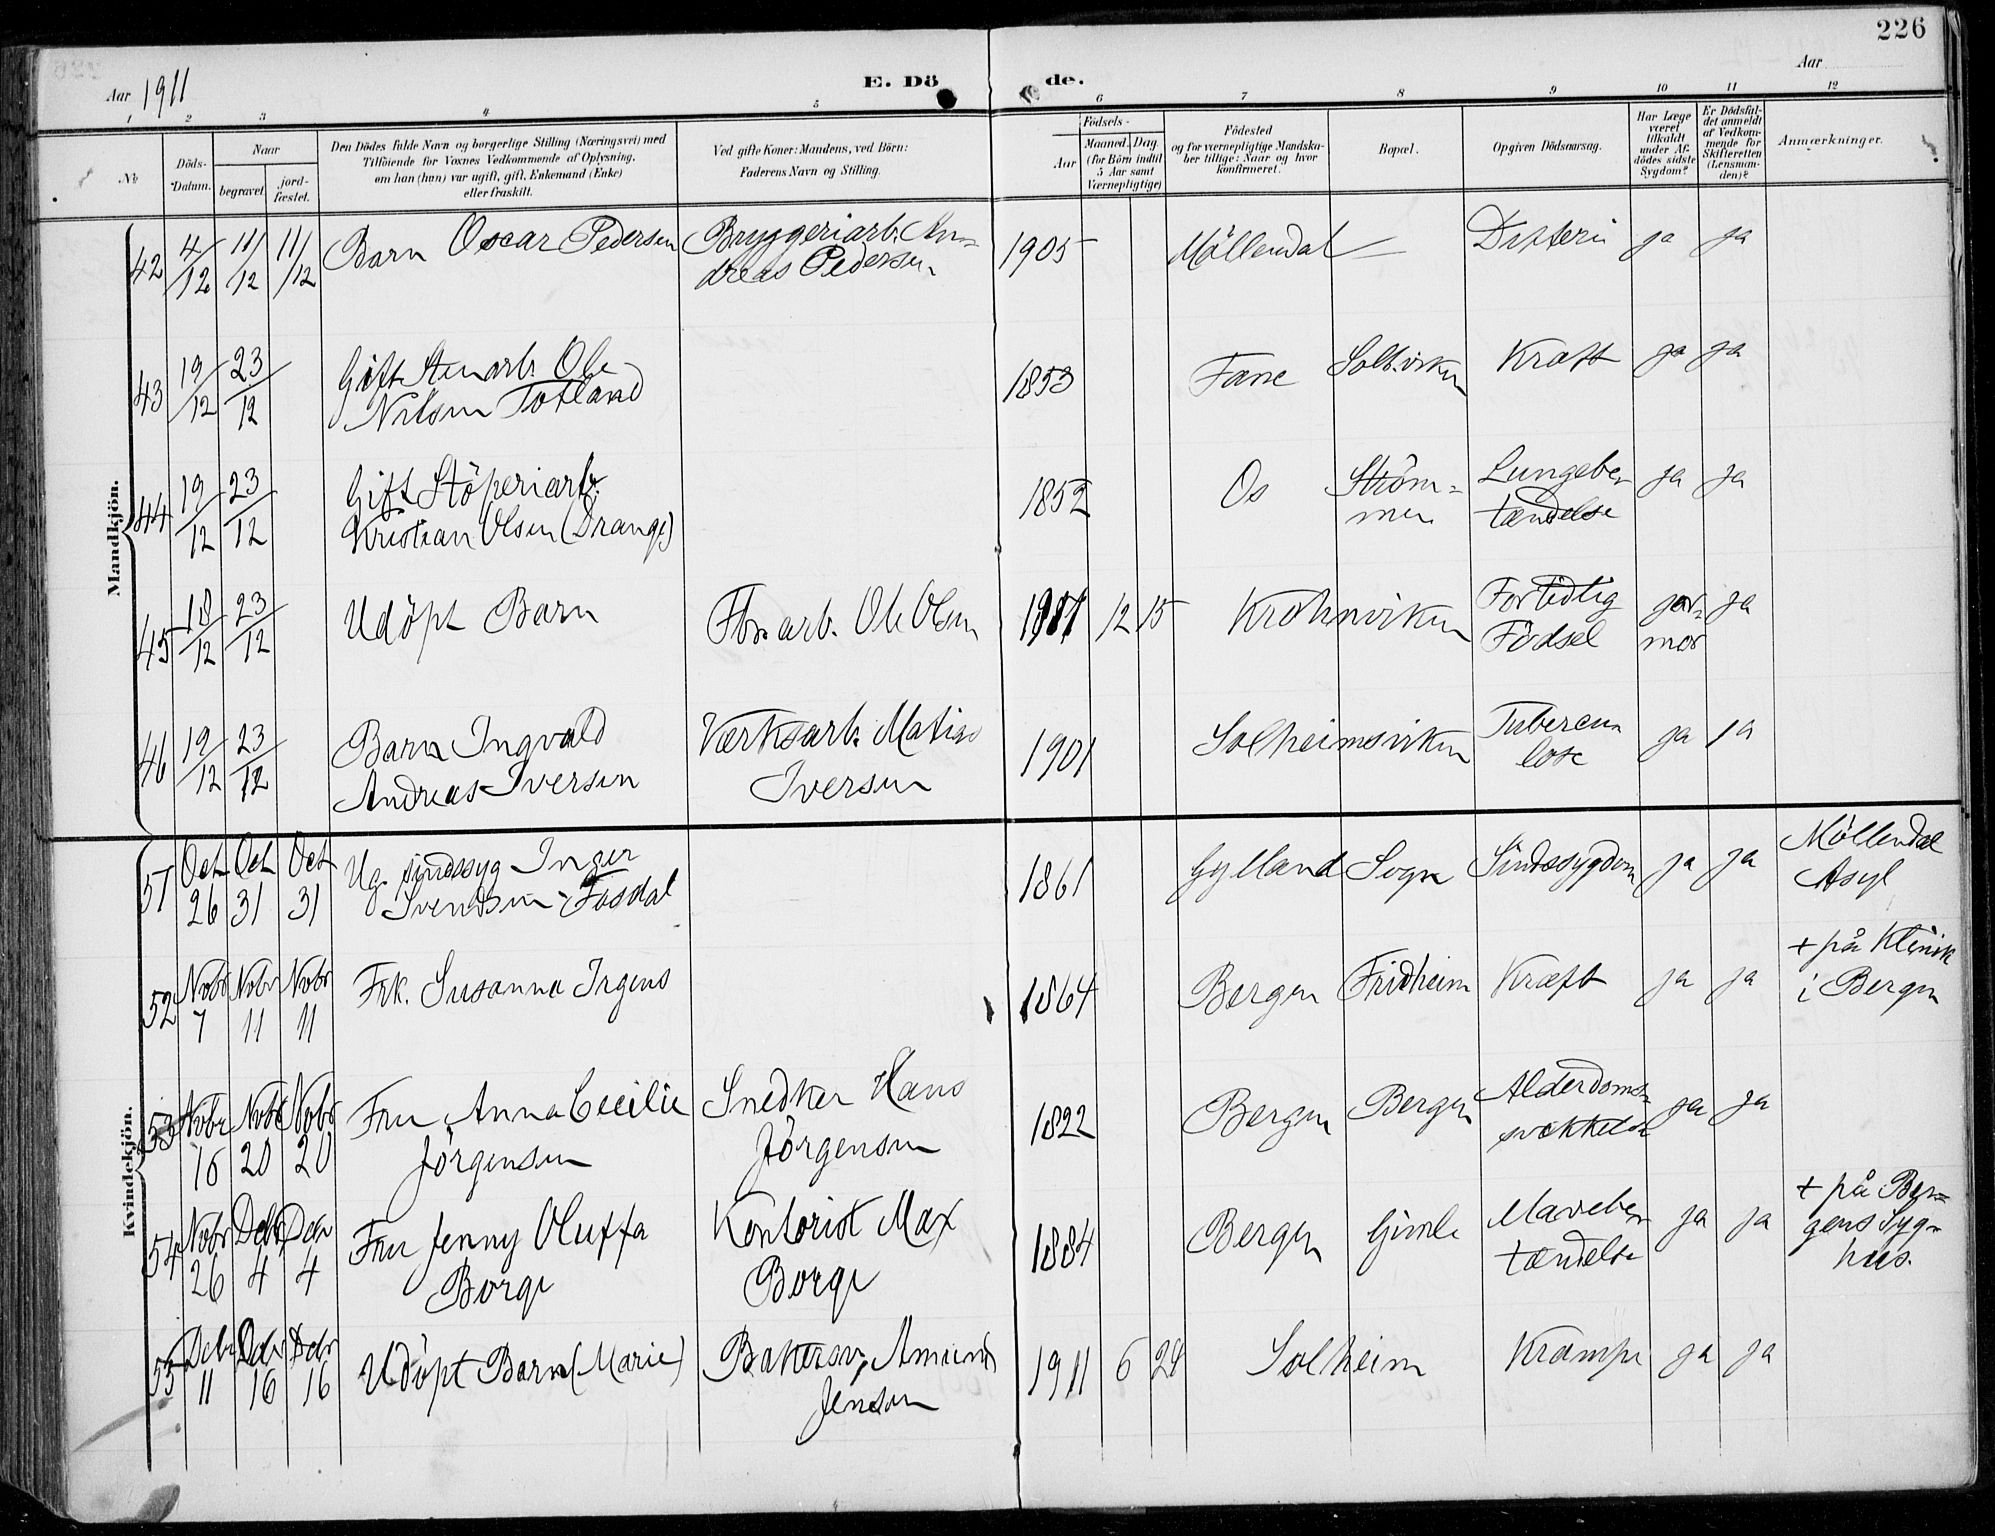 226
Aar 1911
E. Dö
de.
Aar
1 2 3 4 5 6 7 8 9 10 11 12
No
Döds-Datum.
Naar
begravet.
jord-fæstet.
Den Dödes fulde Navn og borgerlige Stilling (Næringsvei) med
Tilföiende for Voxnes Vedkommende af Oplysning,
om han (hun) var ugift, gift, Enkemand (Enke)
eller fraskilt.
Ved gifte Koner: Mandens, ved Börn:
Faderens Navn og Stilling.
Födsels-
Aar
Maaned. Dag.
(for Börn indtil
5 Aar samt
Værnepligtige)
Födested
og for værnepligtige Mandska-
ber tillige: Naar og hvor
konfirmeret.
Bopæl.
Opgiven Dödsaarsag.
Har Læge
været
tilkaldt
under Af-
dödes sidste
Sygdom?
Er Dödsfal-
det anmeldt
af Vedkom-
mende for
Skifteretten
(Lensman-
den)?
Anmærkninger.
Mandkjön.
42 4/12 11/12 11/12 Barn Oscar Pedersen Bryggeriarb. An-
dreas Pedersen 1905 Möllendal — Difteri ja ja
43 19/12 23/12 Gift Stenarb. Ole
Nilsen Totland 1853 Fane Solh.viken Kræft ja ja
44 19/12 23/12 Gift Stöperiarb.
Kristian Olsen (Drange) 1852 Os Ström-
men Lungebe-
tændelse ja ja
45 18/12 23/12 Udöpt Barn arb. Ole Olsen 1911 12 15 Krohnviken Fortidlig
Födsel jor-
mor ja
46 19/12 23/12 Barn Ingvald
Andreas Iversen Værksarb. Matias
Iversen 1901 Solheimsviken Tubercu-
lose ja ja
Kvindekjön.
51 Oct 26 Oct 31 Oct 31 Ug. sindssyg Inger
Svendsen Fosdal 1861 Gylland Sogn Sindssygdom ja ja Möllendal
Asyl
52 Nobr 7 Nobr 11 Nobr 11 Frk. Susanna Irgens 1864 Bergen Fridheim Kræft ja ja + på Klinik
i Bergen
53 Nobr 16 Nobr 20 Nobr 20 Fru Anna Cecilie
Jörgensen Snedker Hans
Jörgensen 1822 Bergen Bergen Alderdoms-
svækkelse ja ja
54 Nobr 26 Debr 4 Debr 4 Fru Jenny Oluffa
Borge Kontorist Max
Borge 1884 Bergen Gimle Mavebe-
tændelse ja ja + på Ber-
gens Syge-
hus.
55 Debr 11 Debr 16 Debr 16 Udöpt Barn (Marie) Bakersv. Amund
Jensen 1911 6 24 Solheim Krampe ja ja